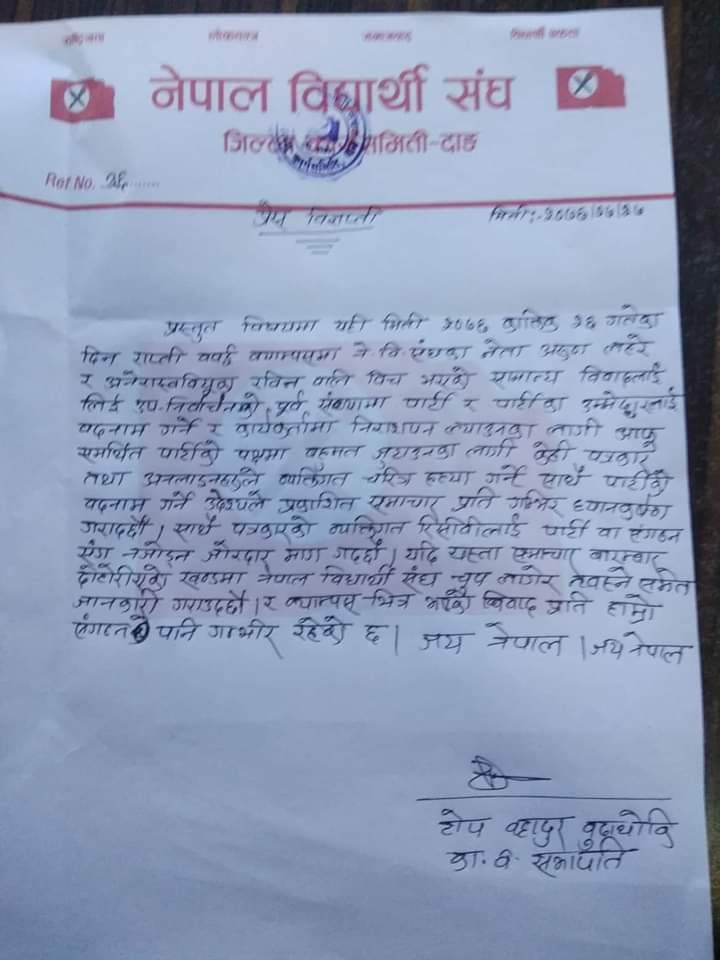 राष्ट्रियता लोकतन्त्र समाजवाद विद्यार्थी एकता
नेपाल विद्यार्थी संघ
जिल्ला कार्यसमिति-दाङ
Ref No. २६......
प्रेस विज्ञप्ती
मिती:-२०७६।०७।२७
प्रस्तुत विषयमा यही मिती २०७६ कार्तिक २६ गतेका
दिन राप्ती बबई क्याम्पसमा ने.वि.संघका नेता लहरे
र अनेरास्ववियुका रविन वलि विच भएको सामान्य विवादलाई
लिई उप-निर्वाचनको पूर्व संध्यामा पार्टी र पार्टीका उम्मेद्वारलाई
वदनाम गर्ने र कार्यकर्तामा निराशपन ल्याउनका लागी आफू
समर्थित पार्टीको पक्षमा वहमत जुटाउनका लागी केही पत्रकार
तथा अनलाइनहरुले व्यक्तिगत चरित्र हत्या गर्ने साथै पार्टीको
वदनाम गर्ने उदेश्यले प्रकाशित समाचार प्रति गम्भिर ध्यानाकर्षण
गराउदछौं। साथै पत्रकारको व्यक्तिगत रिसीवीलाई पार्टी वा संगठन
संग नजोड्न जोरदार माग गर्दछौं। यदि यस्ता समाचार बारम्बार
दोहोरीएको खण्डमा नेपाल विद्यार्थी संघ चूप लागेर नवस्ने समेत
जानकारी गराउदछौं। र क्याम्पस भित्र भएको विवाद प्रति हाम्रो
संगठन पनि गम्भीर रहेको छ। जय नेपाल। जय नेपाल
टोप वहादुर वुढाथोकि
का.वा. सभापति